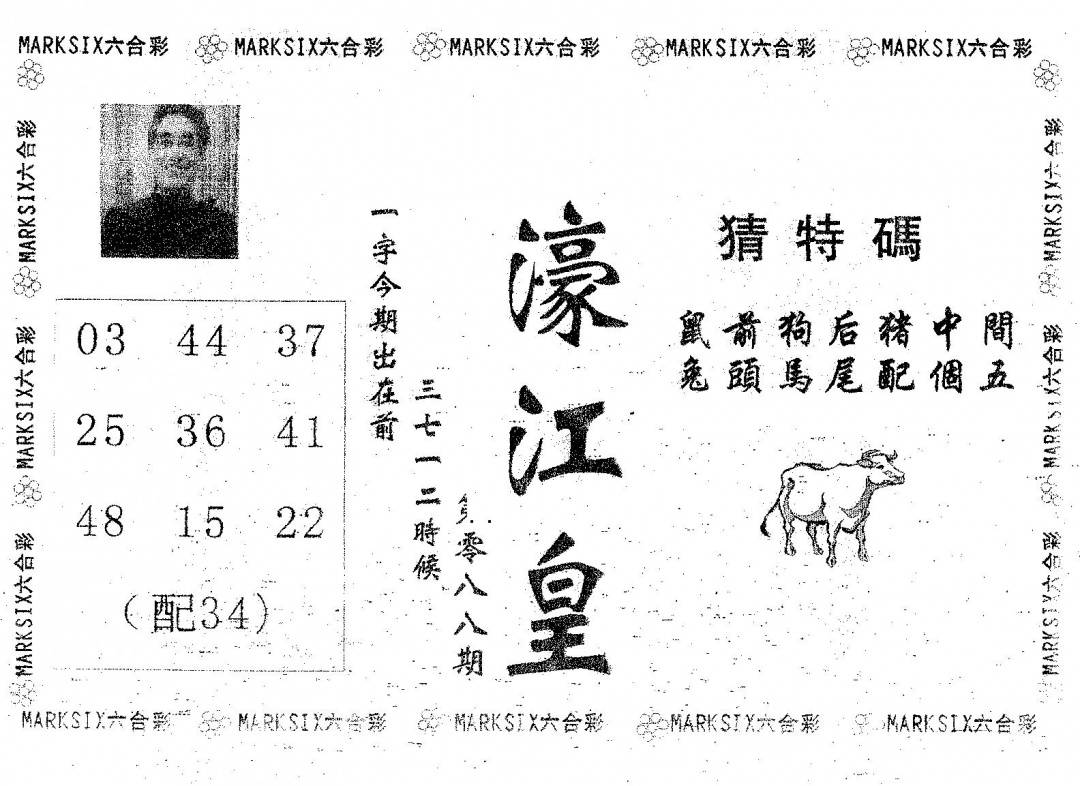 MARKSIX六合彩 MARKSIX六合彩 MARKSIX六合彩 MARKSIX六合彩 MARKSIX六合彩
MARKSIX六合彩
MARKSIX六合彩
MARKSIX六合彩
03 44 37
25 36 41
48 15 22
(配34)
一字今期出在前
三七一二時候
零八八期
濠江皇
猜特碼
鼠前狗后猪中間
兔頭馬尾配個五
MARKSIX六合彩
MARKSIX六合彩
MARKSIX六合彩
MARKSIX六合彩 MARKSIX六合彩 MARKSIX六合彩 MARKSIX六合彩 MARKSIX六合彩